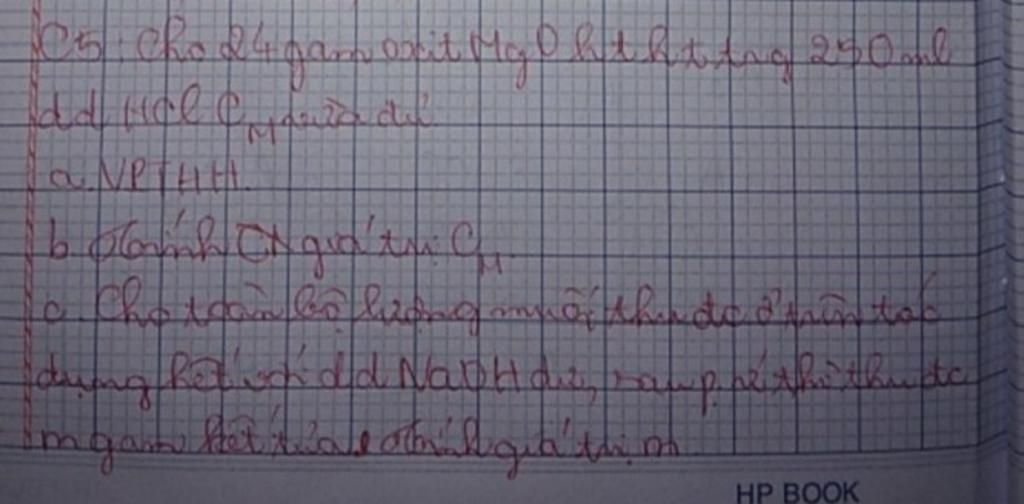 C5: Cho 24 gam oxit MgO h t h t tng 250 ml
dd HCl CM vừa đủ
a. VPTHH.
b. tính giá trị CM
c. Cho toàn bộ lượng muối thu đc ở trên tác
dụng hết với dd NaOH dư, sau p. hế thì thu đc
m gam kết tủa tính giá trị m
HP BOOK